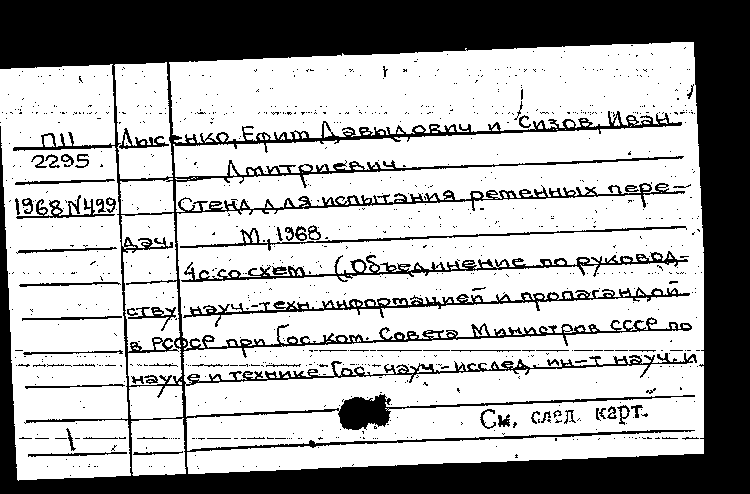 П11 Лысенко, Ефим Давыдович и Сизов, Иван
2295. Дмитриевич.
1968 N429 Стенд для испытания ременных пере-
дач. М., 1968.
4с. со схем. (Объединение по руковод-
ству науч.-техн. информацией и пропагандой
в РСФСР при Гос. ком. Совета Министров СССР по
науке и технике Гос. науч.-исслед. ин-т науч. и
См. след. карт.
1